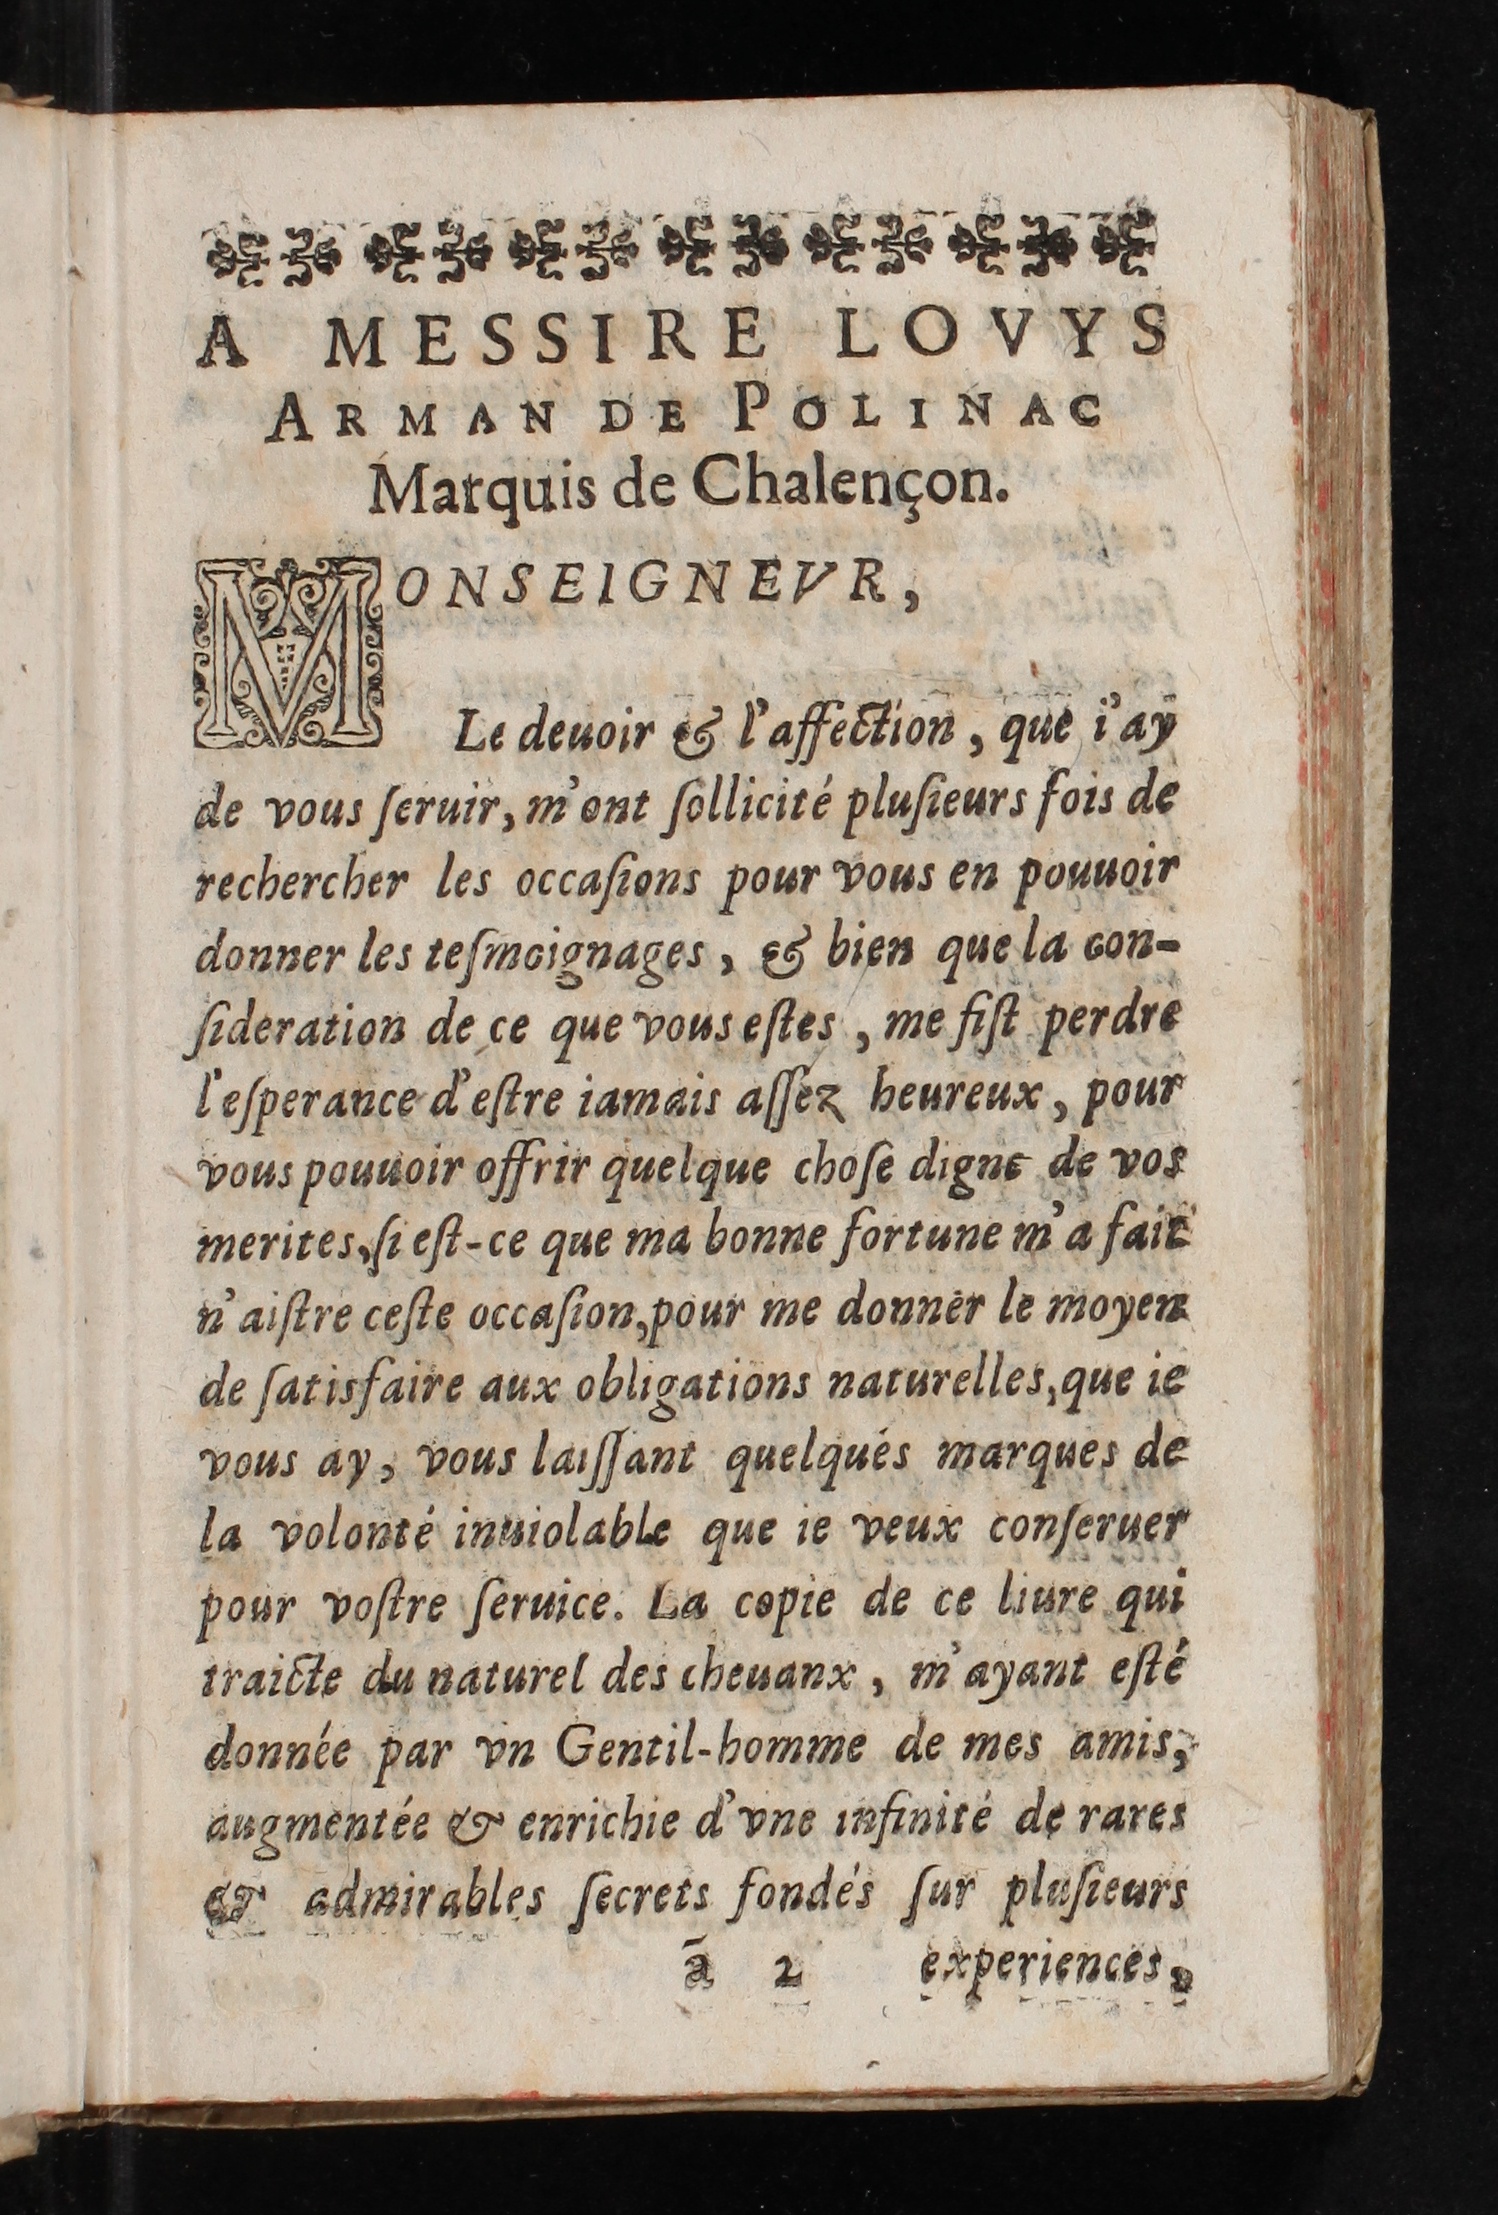 A MESSIRE LOVYS
ARMAN DE POLINAC
Marquis de Chalençon.
MONSEIGNEVR,
Le deuoir & l'affection, que i'ay
de vous ſeruir, m'ont ſollicité pluſieurs fois de
rechercher les occaſions pour vous en pouuoir
donner les teſmoignages, & bien que la con-
ſideration de ce que vous eſtes, me fiſt perdre
l'eſperance d'eſtre iamais aſſez heureux, pour
vous pouuoir offrir quelque choſe digne de vos
merites, ſi eſt-ce que ma bonne fortune m'a fait
n'aiſtre ceſte occaſion, pour me donner le moyen
de ſatisfaire aux obligations naturelles, que ie
vous ay, vous laiſſant quelqués marques de
la volonté inuiolable que ie veux conſeruer
pour voſtre ſeruice. La copie de ce liure qui
traicte du naturel des cheuanx, m'ayant eſté
donnée par vn Gentil-homme de mes amis,
augmentée & enrichie d'vne infinité de rares
& admirables ſecrets fondés ſur pluſieurs
ã 2 experiences,